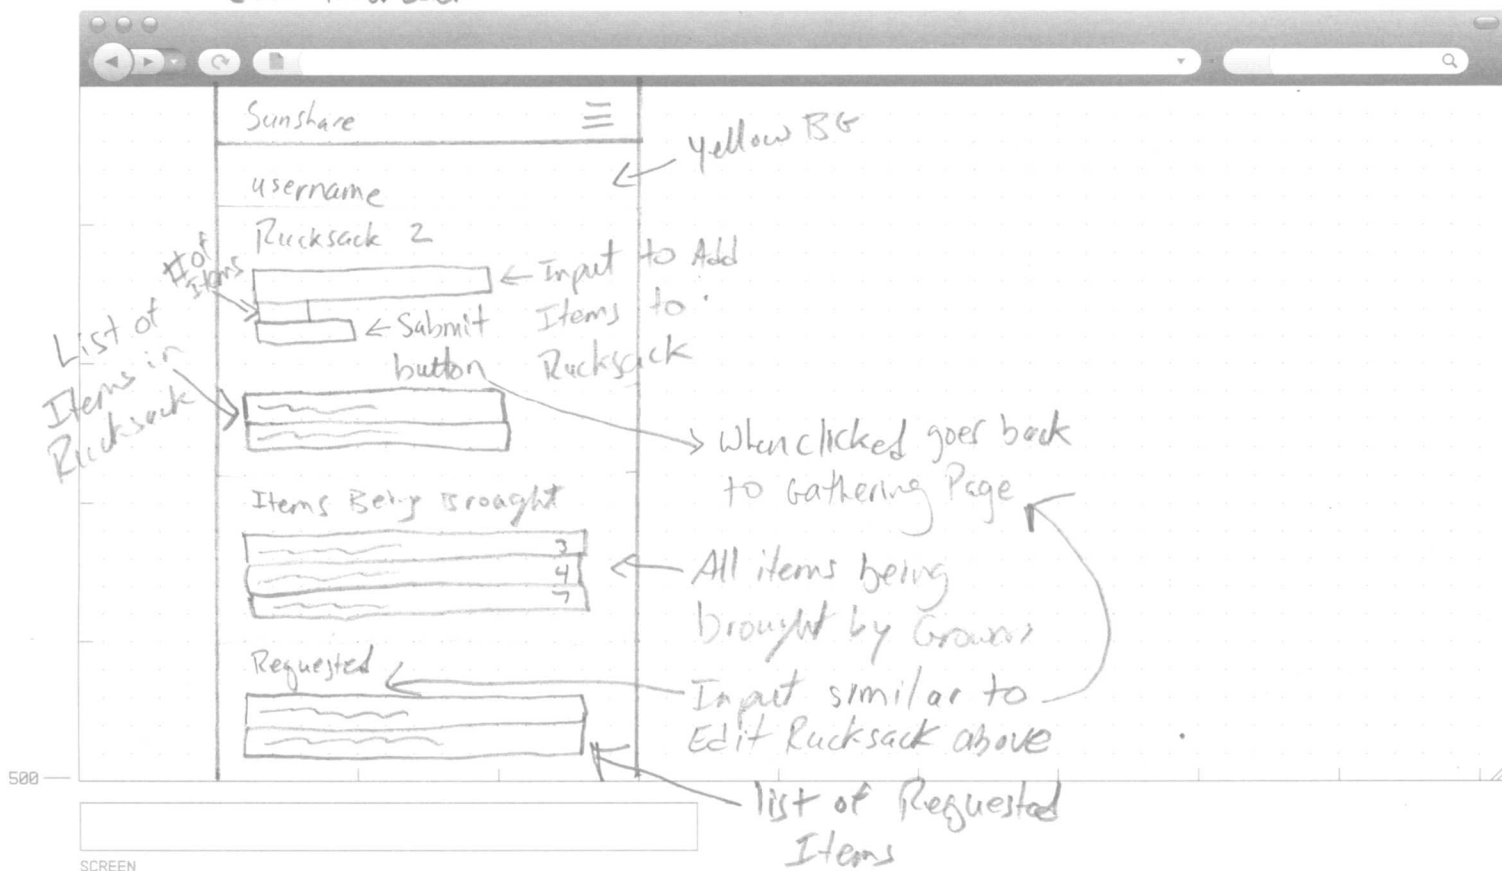 Sunshare
Yellow BG
username
Rucksack 2
# of
Items
Input to Add
Items to
Rucksack
Submit
button
List of
Items in
Rucksack
When clicked goes back
to Gathering Page
Items Being Brought
3
4
7
All items being
brought by
Requested
Input similar to
Edit Rucksack above
list of Requested
Items
500
SCREEN